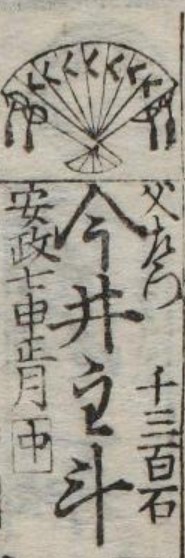 父左門
千三百石
今井主斗
安政七申正月 中